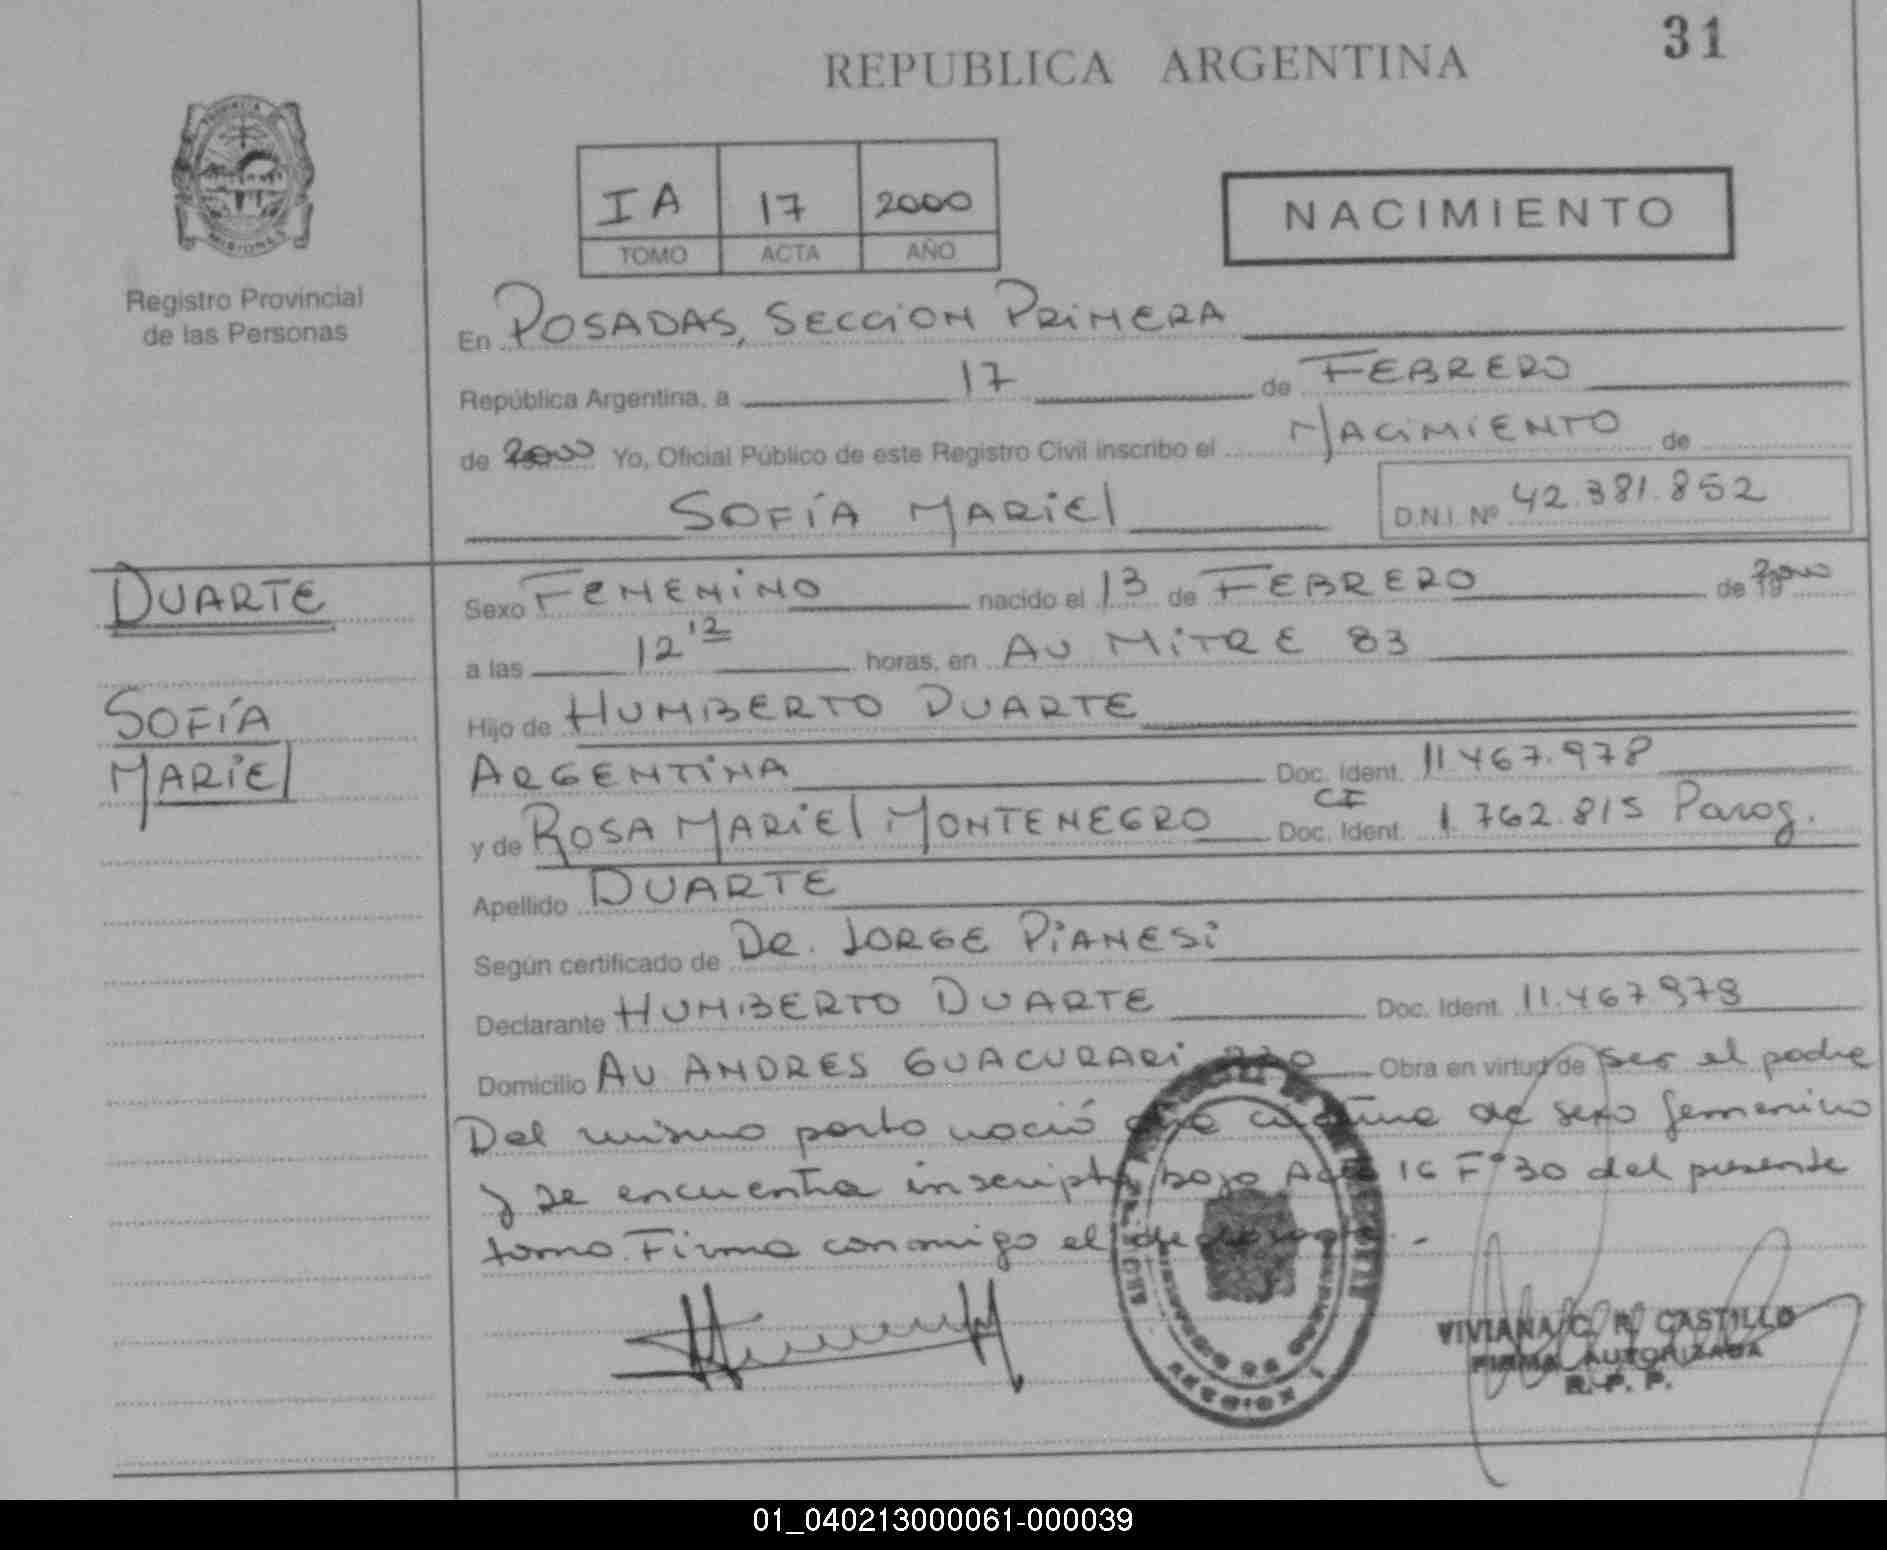 31
REPUBLICA ARGENTINA
PROVINCIA
MISIONES
Registro Provincial
de las Personas
IA 17 2000
TOMO ACTA AÑO
NACIMIENTO
En POSADAS, SECCION PRIMERA
República Argentina, a 17 de FEBRERO
de 2000 Yo, Oficial Público de este Registro Civil inscribo el NACIMIENTO de
SOFÍA MARIEL
D.N.I. Nº 42.381.852
DUARTE
SOFÍA
MARIEL
Sexo FEMENINO nacido el 13 de FEBRERO de 2000
a las 12 12 horas, en AV MITRE 83
Hijo de HUMBERTO DUARTE
ARGENTINA Doc. Ident. 11.467.978
y de ROSA MARIEL MONTENEGRO CI Doc. Ident. 1.762.815 Parag.
Apellido DUARTE
Según certificado de DR. JORGE PIANESI
Declarante HUMBERTO DUARTE Doc. Ident. 11.467.978
Domicilio AV ANDRES GUACURARI Obra en virtud de ser el padre
Del mismo parto nació otra criatura de sexo femenino
y se encuentra inscripta bajo Acta 16 Fº 30 del presente
tomo. Firma conmigo el
VIVIANA C. R. CASTILLO
FIRMA AUTORIZADA
R. P. P.
01_040213000061-000039